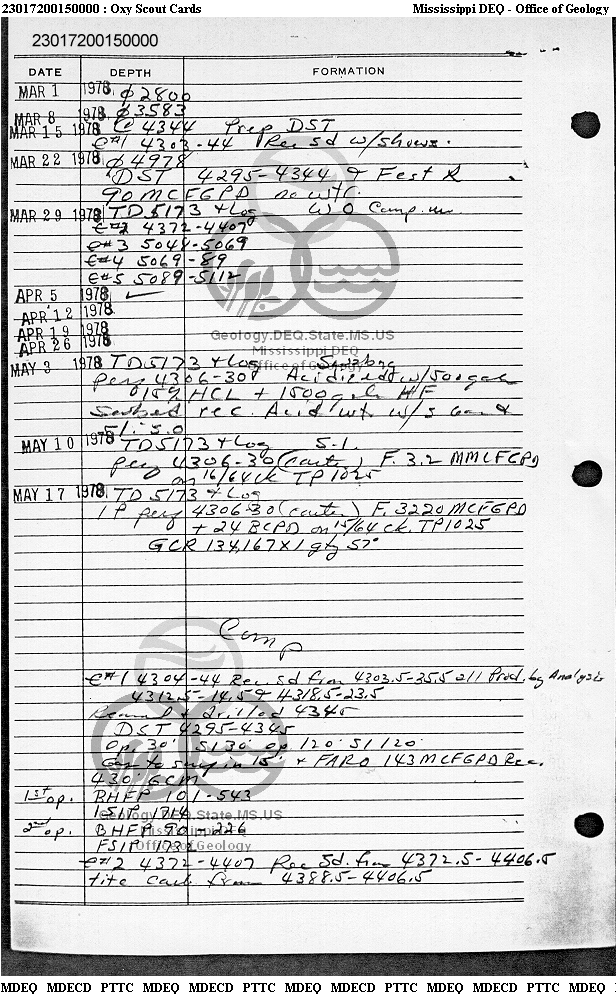 23017200150000 : Oxy Scout Cards Mississippi DEQ - Office of Geology
23017200150000
DATE DEPTH FORMATION
MAR 1 1978 ϕ 2800
MAR 8 1978 ϕ 3583
MAR 15 1978 @ 4344 Prep DST
C#1 4303-44 Rec sd w/shows.
MAR 22 1978 ϕ 4978
DST 4295-4344
90 MCFGPD no wtr.
MAR 29 1978 TD 5173 + Log W O Comp.
C#2 4372-4407
C#3 5044-5069
C#4 5069-89
C#5 5089-5112
APR 5 1978
APR 12 1978
APR 19 1978
APR 26 1978
Geology.DEQ.State.MS.US
Mississippi DEQ
Office of Geology
MAY 3 1978 TD 5173 + Log
perf 4306-30 Acidized w/500 gals
15% HCL + 1500 gals HF
Swabbed rec. Acid wtr w/s gas
MAY 10 1978 TD 5173 + Log S.I.
perf 4306-30 F. 3.2 MMCFGPD
on 16/64 ck TP 1025
MAY 17 1978 TD 5173 + Log
IP perf 4306-30 F. 3220 MCFGPD
+ 24 BCPD on 15/64 ck. TP 1025
GCR 134,167X1 gty 57°
Comp
C#1 4304-44 Rec sd from 4303.5-35.5 all Prod. by Analysis
4312.5-14.5 + 4318.5-23.5
4345
DST 4295-4345
Op. 30" SI 30" Op. 120" SI 120"
Gas to surf in 15" + FARO 143 MCFGPD Rec.
430' GCM
1st op. BHFP 101-543
ISIP 1714
Geology.DEQ.State.MS.US
2nd op. BHFP 90-226
Mississippi DEQ
FSIP 1732
Office of Geology
C#2 4372-4407 Rec Sd. from 4372.5-4406.5
from 4388.5-4406.5
MDEQ MDECD PTTC MDEQ MDECD PTTC MDEQ MDECD PTTC MDEQ MDECD PTTC MDEQ